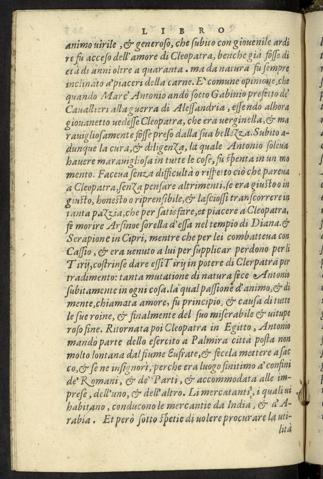 LIBRO
animo virile, & generoso, che subito con giovenile ardi
re fu acceso dell'amore di Cleopatra, benche già fosse di
età di anni oltre a quaranta. ma da natura fu sempre
inclinato a' piaceri della carne. E' comune opinione, che
quando Marc' Antonio andò sotto Gabinio prefetto de'
Cavallieri alla guerra di Alessandria, essendo alhora
giovanetto vedesse Cleopatra, che era verginella, & ma
ravigliosamente fosse preso dalla sua bellezza. Subito a-
dunque la cura, & diligenza, la quale Antonio soleva
havere maravigliosa in tutte le cose, fu spenta in un mo
mento. Faceva senza difficultà o rispetto ciò che pareva
a Cleopatra, senza pensare altrimenti, se era giusto o in
giusto, honesto o riprensibile, & lasciossi transcorrere in
tanta pazzia, che per satisfare, et piacere a Cleopatra,
fe morire Arsinoe sorella d'essa nel tempio di Diana, &
Serapione in Cipri, mentre che per lei combatteva con
Cassio, & era venuto a lui per supplicar perdono per li
Tirij, costrinse dare essi Tirij in potere di Clerpatra per
tradimento: tanta mutatione di natura fece Antonio
subitamente in ogni cosa. la qual passione d'animo, & di
mente, chiamata amore, fu principio, & causa di tutte
le sue roine, & finalmente del suo miserabile & vitupe
roso fine. Ritornata poi Cleopatra in Egitto, Antonio
mando parte dello esercito a Palmira città posta non
molto lontana dal fiume Eufrate, & fecela mettere a sac
co, & se ne insignorì, perche era luogo finitimo a' confini
de' Romani, & de' Parti, & accommodata alle im-
prese, dell'uno, & dell'altro. Li mercatanti, i quali vi
habitano, conducono le mercantie da India, & d' A-
rabia. Et però sotto spetie di volere procurare la uti-
lità